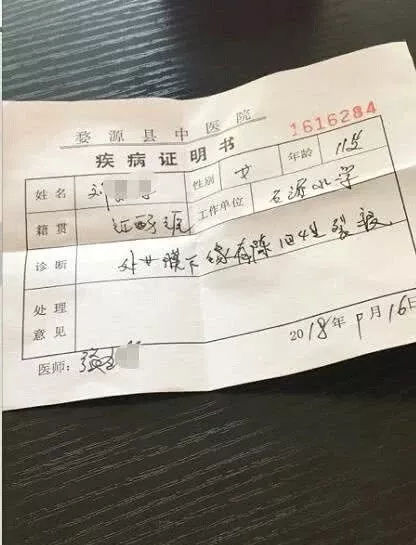 婺源县中医院
1616284
疾病证明书
姓名 刘 性别 女 年龄 11岁
籍贯 江西 工作单位 小学
诊断 处女膜下缘有陈旧性裂痕
处理
意见
2018年9月16日
医师: